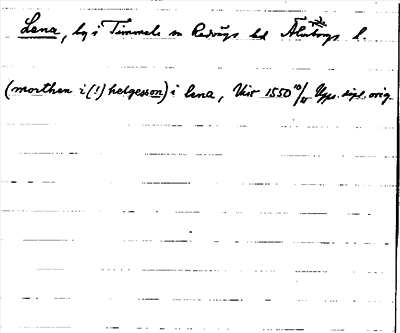 Lena, by i Timmele sn Redvägs hd Älvsborgs l.
(morthen i (!) helgesson) i lena, Vkir 1550 10/11 Upps. dipl. orig.